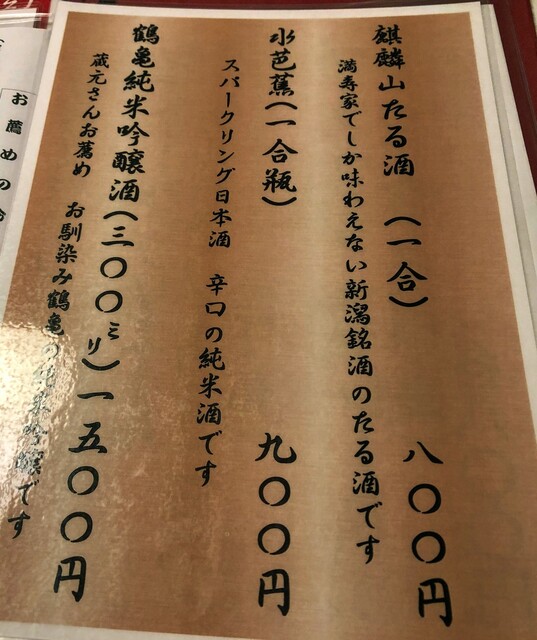 麒麟山たる酒 (一合) 八〇〇円
満寿家でしか味わえない新潟銘酒のたる酒です
水芭蕉(一合瓶) 九〇〇円
スパークリング日本酒 辛口の純米酒です
鶴亀純米吟醸酒(三〇〇ミリ)一五〇〇円
蔵元さんお薦め お馴染み鶴亀の純米吟醸です
お薦めの